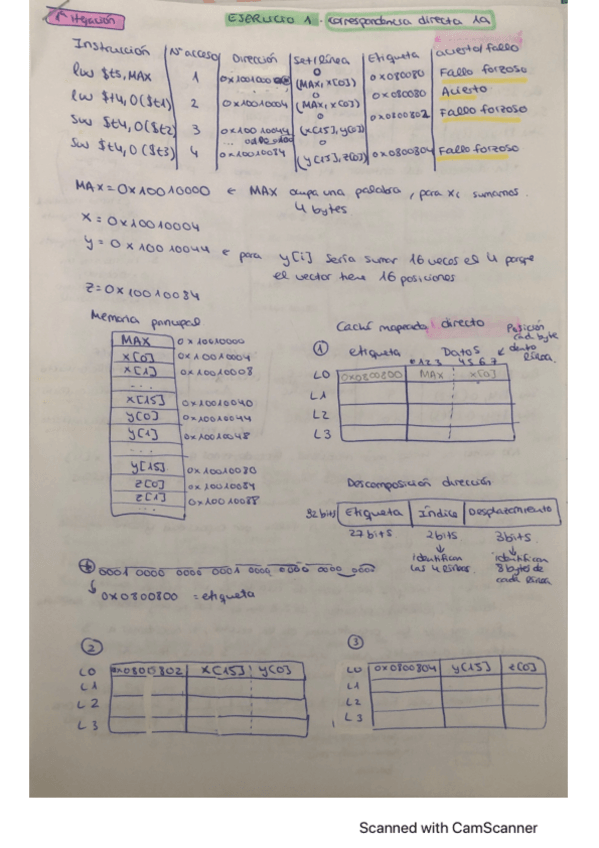 1ª Iteración
EJERCICIO 1. Correspondencia directa 1a
Instrucción Nº acceso Dirección Set/línea Etiqueta acierto/fallo
lw $t5, MAX 1 0x10010000 0 (MAX, x[0]) 0x080080 Fallo forzoso
lw $t4, 0($t1) 2 0x10010004 0 (MAX, x[0]) 0x080080 Acierto
sw $t4, 0($t2) 3 0x10010044 0 (x[15], y[0]) 0x0800802 Fallo forzoso
sw $t4, 0($t3) 4 0x10010084 0 (y[15], z[0]) 0x0800804 Fallo forzoso
MAX = 0x10010000 MAX ocupa una palabra, para x, sumamos
4 bytes
X = 0x10010004
y = 0x10010044 para y[i] sería sumar 16 veces el 4 porque
el vector tiene 16 posiciones
z = 0x10010084
Memoria principal
MAX 0x10010000
x[0] 0x10010004
x[1] 0x10010008
...
x[15] 0x10010040
y[0] 0x10010044
y[1] 0x10010048
...
y[15] 0x10010080
z[0] 0x10010084
z[1] 0x10010088
Caché mapeado directo
Posición
cada byte
dentro
línea.
1 etiqueta Datos
0 1 2 3 4 5 6 7
L0 0x0800800 MAX x[0]
L1
L2
L3
Descomposición dirección
32 bits Etiqueta Índice Desplazamiento
27 bits 2 bits 3 bits
identifican las 4 líneas
identifican 8 bytes de cada línea
0001 0000 0000 0001 0000 0000 0000 0000
0x0800800 = etiqueta
2
L0 0x0800802 X[15] y[0]
L1
L2
L3
3
L0 0x0800804 y[15] z[0]
L1
L2
L3
Scanned with CamScanner